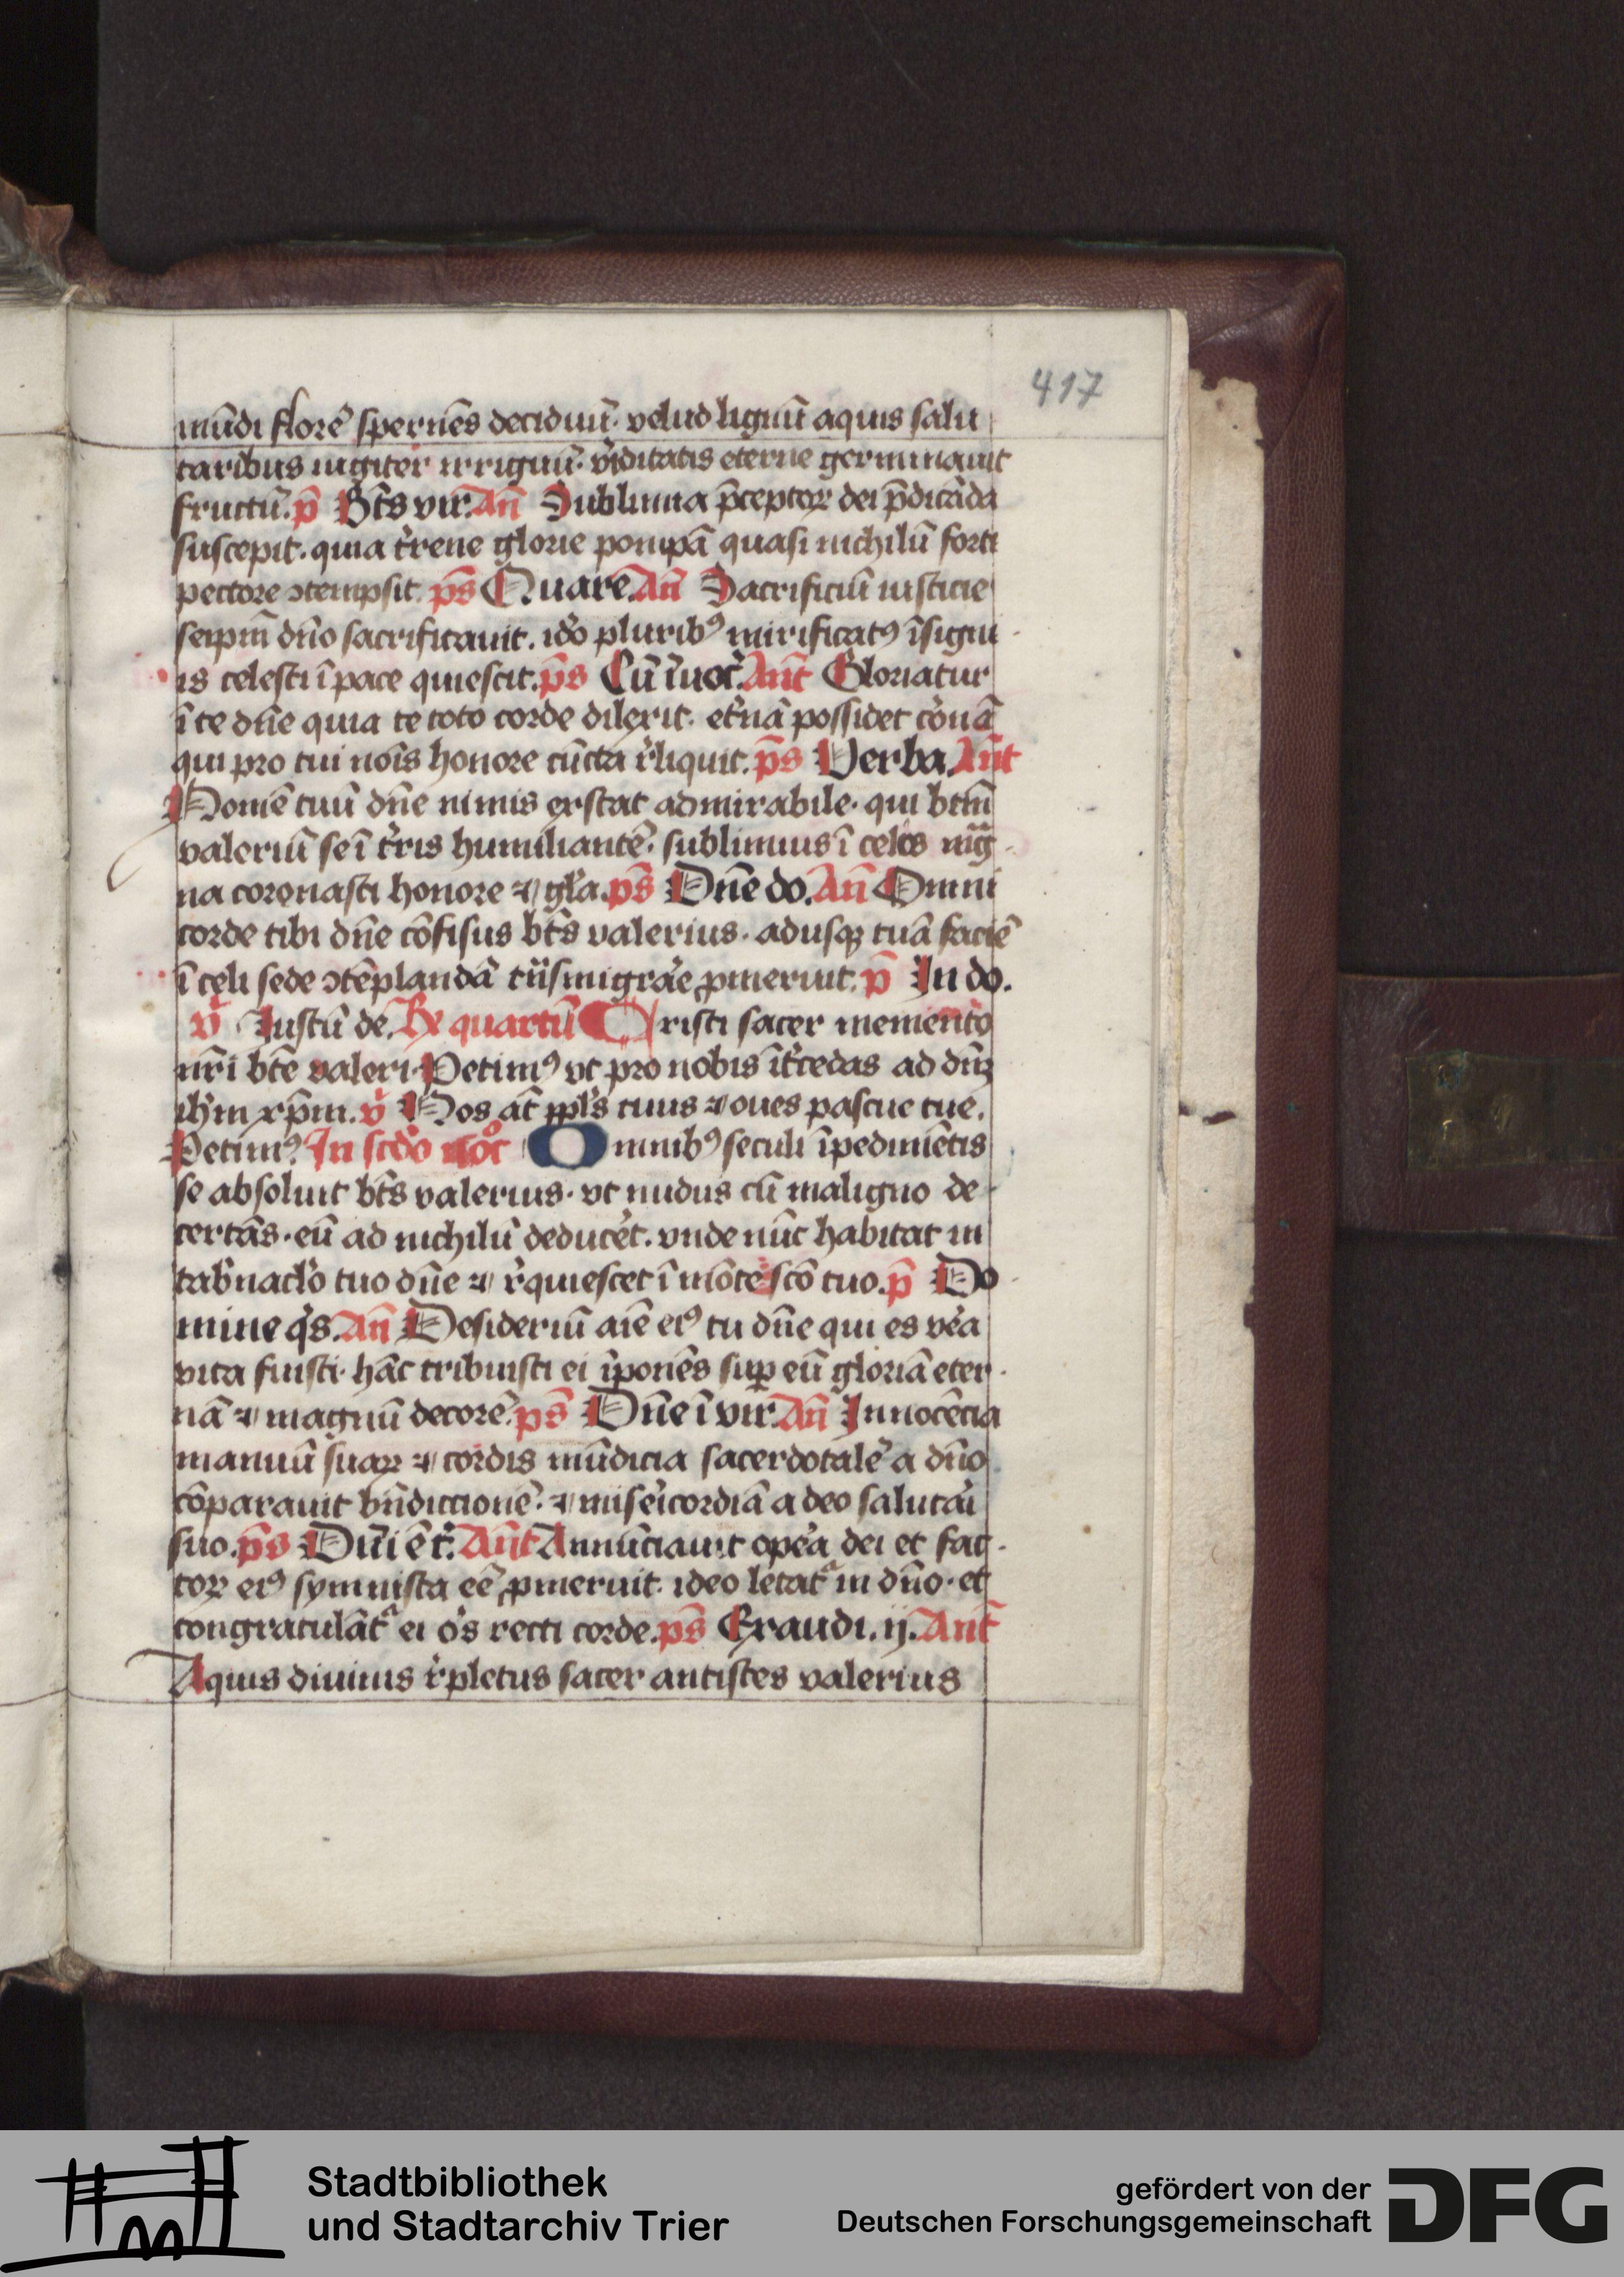 417
mūdi florē spernēs deciduū· velud lignū aquis salu
taribus iugiter irriguū· v̓iditatis eterne germinauit
fructū. p̄ Bt̄s vir. Añ Sublimia p̄ceptoꝝ dei p̄dicāda
suscepit. quia t̓rene glorie pompā quasi nichilū forti
pectore ↄtempsit. ps̄ Quare. Añ Sacrificiū iusticie
seipm̄ dn̄o sacrificauit. id̓o pluribꝰ mirificatꝰ īsigni
is celesti ī pace quiescit. ps̄ Cū īuoc̓. Añt Gloriatur
ī te dn̄e quia te toto corde dilexit. et̓nā possidet co̓nā
qui pro tui noīs honore cūcta r̓liquit. ps̄ Verba. Añt
Nomē tuū dn̄e nimis exstat admirabile· qui btm̄
valeriū se ī t̓ris humiliantē. sublimius ī celos mag
na coronasti honore ⁊ gl̓a. ps̄ Dn̄e do. Añ Omni
corde tibi dn̄e cōfisus bt̄s valerius. adusqꝫ tuā faciē
ī celi sede ↄtēplandā t̓ nsmigra̓e ꝓmeruit. p̄ In do.
v̓ Iustū de. Rx quartū Cristi sacer memento
nr̄i bt̄e valeri. Petimꝰ vt pro nobis īt̓cedas ad dn̄ꝫ
ih̓m xp̄m. v̓ Nos at̄ ppl̓s tuus ⁊ oues pascue tue.
Petimꝰ. In scd̓o noc̓ Omnibꝰ seculi īpedimētis
se absoluit bt̄s valerius. vt nudus cū maligno de
certās. eū ad nichilū deduce̓t. vnde nūc habitat in
tab̓nacl̓o tuo dn̄e ⁊ r̓quiescet ī mōte scō tuo. p̄ Do
mine q̓s. Añ Desideriū aīē eiꝰ tu dn̄e qui es ve̓a
vita fuisti. hāc tribuisti ei īponēs suꝑ eū gloriā eter
nā ⁊ magnū decorē. ps̄ Dn̄e ī vir. Añ Innocēcia
manuū suaꝝ ⁊ cordis mūdicia sacerdotalē a dn̄o
cōparauit bn̄diccionē. ⁊ mise̓icordiā a deo saluta̓i
suo. ps̄ Dn̄i ēt̓. Añt Annūciauit ope̓a dei et fac
toꝝ eiꝰ symnista eē ꝓmeruit. ideo letatᷓ in dn̄o. et
congratulātᷓ ei o̓s recti corde. ps̄ Exaudi. ij. Añt
Aquis diuinis r̓pletus sacer antistes valerius
Stadtbibliothek
und Stadtarchiv Trier
gefördert von der
Deutschen Forschungsgemeinschaft
DFG